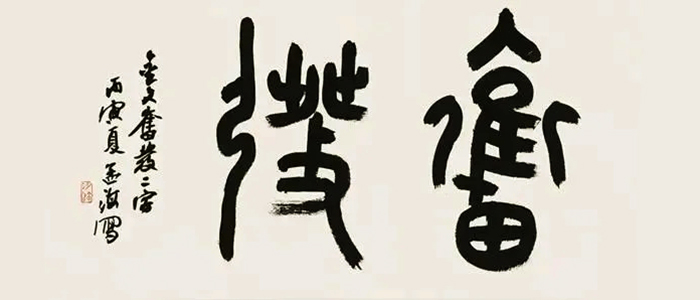 奮發
金文奮發二字
丙寅夏孟海寫